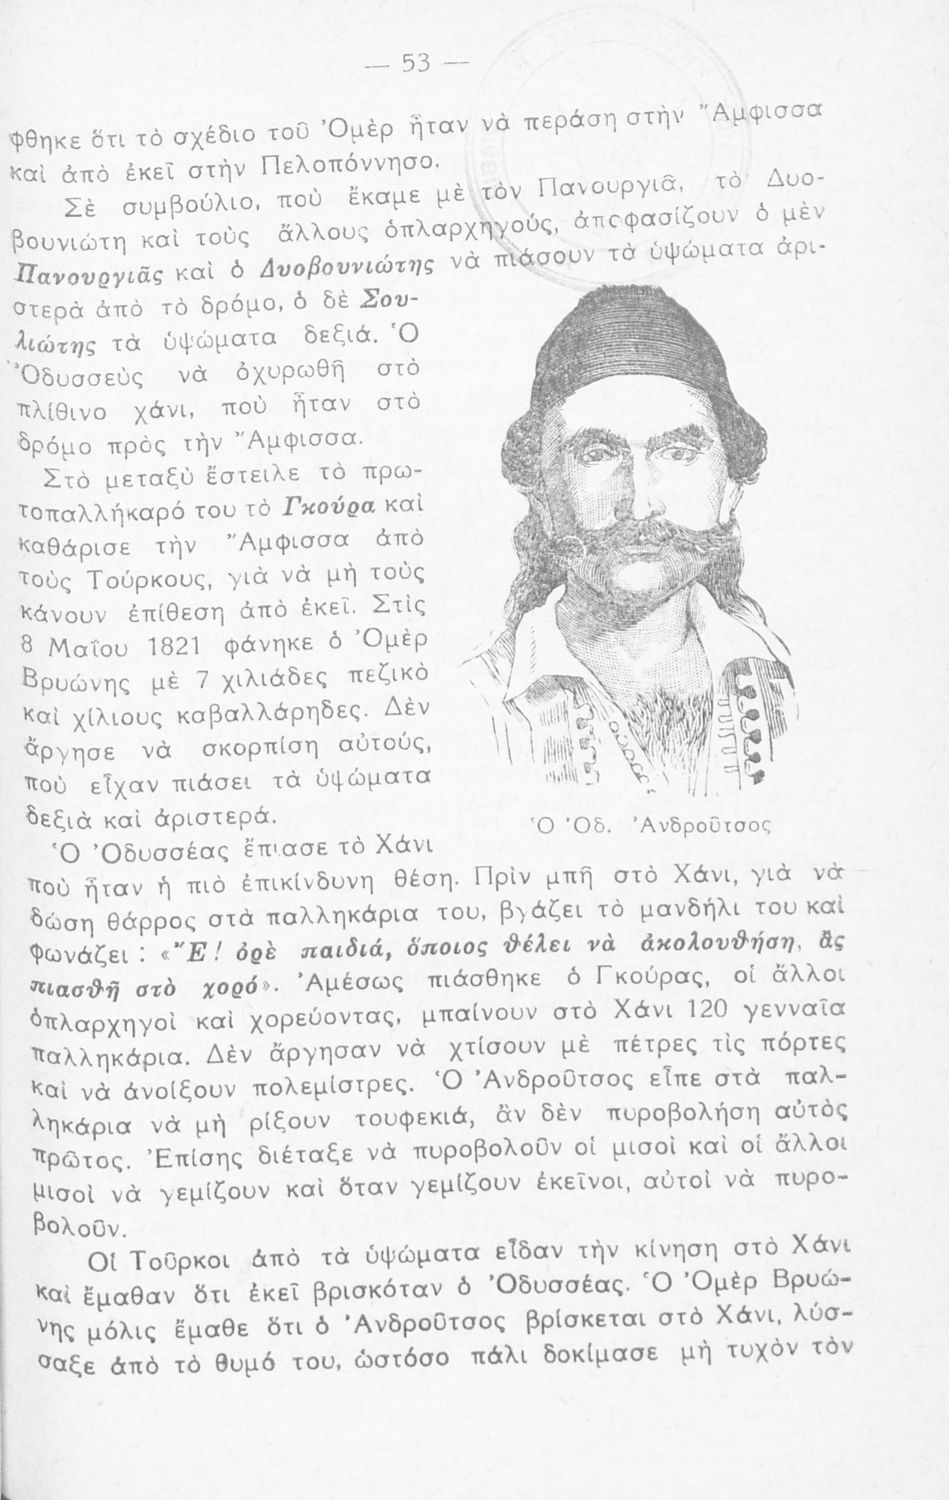 — 53 —
φθηκε ὅτι τὸ σχέδιο τοῦ Ὀμὲρ ἦταν νὰ περάση στὴν Ἄμφισσα
καὶ ἀπὸ ἐκεῖ στὴν Πελοπόννησο.
Σὲ συμβούλιο, ποὺ ἔκαμε μὲ τὸν Πανουργιᾶ, τὸ Δυο-
βουνιώτη καὶ τοὺς ἄλλους ὁπλαρχηγούς, ἀπεφασίζουν ὁ μὲν
Πανουργιᾶς καὶ ὁ Δυοβουνιώτης νὰ πιάσουν τὰ ὑψώματα ἀρι-
στερὰ ἀπὸ τὸ δρόμο, ὁ δὲ Σου-
λιώτης τὰ ὑψώματα δεξιά. Ὁ
Ὀδυσσεὺς νὰ ὀχυρωθῆ στὸ
πλίθινο χάνι, ποὺ ἦταν στὸ
δρόμο πρὸς τὴν Ἄμφισσα.
Στὸ μεταξὺ ἔστειλε τὸ πρω-
τοπαλλήκαρό του τὸ Γκούρα καὶ
καθάρισε τὴν Ἄμφισσα ἀπὸ
τοὺς Τούρκους, γιὰ νὰ μὴ τοὺς
κάνουν ἐπίθεση ἀπὸ ἐκεῖ. Στὶς
8 Μαΐου 1821 φάνηκε ὁ Ὀμὲρ
Βρυώνης μὲ 7 χιλιάδες πεζικὸ
καὶ χίλιους καβαλλάρηδες. Δὲν
ἄργησε νὰ σκορπίση αὐτούς,
ποὺ εἶχαν πιάσει τὰ ὑψώματα
δεξιὰ καὶ ἀριστερά.
Ὁ Ὀδ. Ἀνδροῦτσος
Ὁ Ὀδυσσέας ἔπιασε τὸ Χάνι
ποὺ ἦταν ἡ πιὸ ἐπικίνδυνη θέση. Πρὶν μπῆ στὸ Χάνι, γιὰ νὰ
δώση θάρρος στὰ παλληκάρια του, βγάζει τὸ μανδήλι του καὶ
φωνάζει : «Ἔ! ὀρὲ παιδιά, ὅποιος θέλει νὰ ἀκολουθήση, ἂς
πιασθῆ στὸ χορό». Ἀμέσως πιάσθηκε ὁ Γκούρας, οἱ ἄλλοι
ὁπλαρχηγοὶ καὶ χορεύοντας, μπαίνουν στὸ Χάνι 120 γενναῖα
παλληκάρια. Δὲν ἄργησαν νὰ χτίσουν μὲ πέτρες τὶς πόρτες
καὶ νὰ ἀνοίξουν πολεμίστρες. Ὁ Ἀνδροῦτσος εἶπε στὰ παλ-
ληκάρια νὰ μὴ ρίξουν τουφεκιά, ἂν δὲν πυροβολήση αὐτὸς
πρῶτος. Ἐπίσης διέταξε νὰ πυροβολοῦν οἱ μισοὶ καὶ οἱ ἄλλοι
μισοὶ νὰ γεμίζουν καὶ ὅταν γεμίζουν ἐκεῖνοι, αὐτοὶ νὰ πυρο-
βολοῦν.
Οἱ Τοῦρκοι ἀπὸ τὰ ὑψώματα εἶδαν τὴν κίνηση στὸ Χάνι
καὶ ἔμαθαν ὅτι ἐκεῖ βρισκόταν ὁ Ὀδυσσέας. Ὁ Ὀμὲρ Βρυώ-
νης μόλις ἔμαθε ὅτι ὁ Ἀνδροῦτσος βρίσκεται στὸ Χάνι, λύσ-
σαξε ἀπὸ τὸ θυμό του, ὡστόσο πάλι δοκίμασε μὴ τυχὸν τὸν